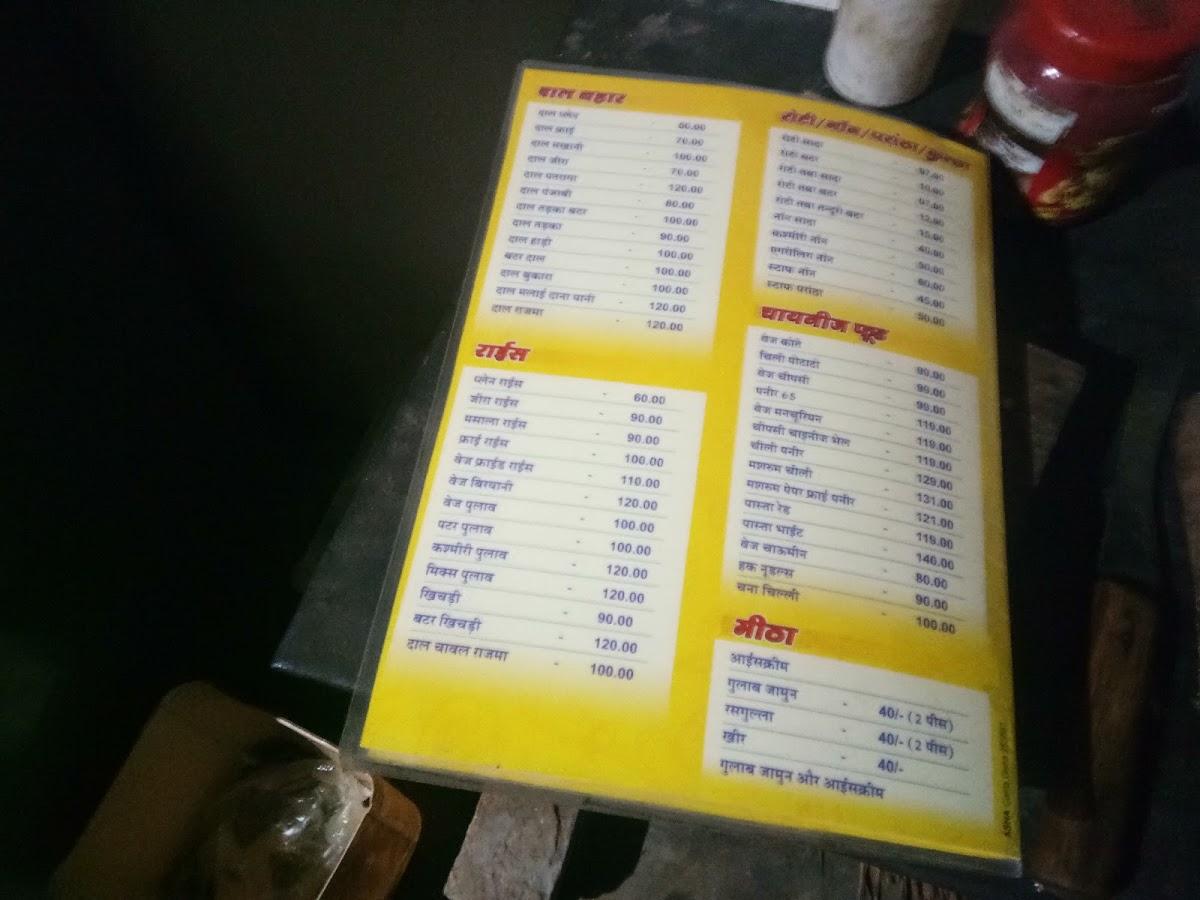 दाल बहार
दाल प्लेन - 60.00
दाल फ्राई - 70.00
दाल मखानी - 100.00
दाल जीरा - 70.00
दाल पतरामा - 120.00
दाल पंजाबी - 80.00
दाल तड़का बटर - 100.00
दाल तड़का - 90.00
दाल हाड़ी - 100.00
बटर दाल - 100.00
दाल बुकारा - 100.00
दाल मलाई दाना पानी - 120.00
दाल राजमा - 120.00
राईस
प्लेन राईस - 60.00
जीरा राईस - 90.00
मसाला राईस - 90.00
फ्राई राईस - 100.00
वेज फ्राईड राईस - 110.00
वेज बिरयानी - 120.00
वेज पुलाव - 100.00
पटर पुलाव - 100.00
कश्मीरी पुलाव - 120.00
मिक्स पुलाव - 120.00
खिचड़ी - 90.00
बटर खिचड़ी - 120.00
दाल चावल राजमा - 100.00
रोटी/नॉन/परांठा/कुल्छा
रोटी सादा - 07.00
रोटी बटर - 10.00
रोटी तवा सादा - 07.00
रोटी तवा बटर - 12.00
रोटी तवा तन्दुरी बटर - 15.00
नॉन सादा - 40.00
कश्मीरी नॉन - 90.00
एगरोलिंग नॉन - 60.00
स्टाफ नॉन - 45.00
स्टाफ परांठा - 50.00
चायनीज फूड
वेज कोते - 99.00
चिली पोटाटो - 99.00
वेज चौपसी - 99.00
पनीर 65 - 119.00
वेज मनचूरियन - 119.00
चोपसी चाइनीज भेल - 119.00
चीली पनीर - 129.00
मशरुम चीली - 131.00
मशरुम पेपर फ्राई पनीर - 121.00
पास्ता रेड - 119.00
पास्ता भाईट - 140.00
वेज चाऊमीन - 80.00
हक नूडल्स - 90.00
चना चिल्ली - 100.00
मीठा
आईसक्रीम
गुलाब जामुन - 40/- (2 पीस)
रसगुल्ला - 40/- (2 पीस)
खीर - 40/-
गुलाब जामुन और आईसक्रीम